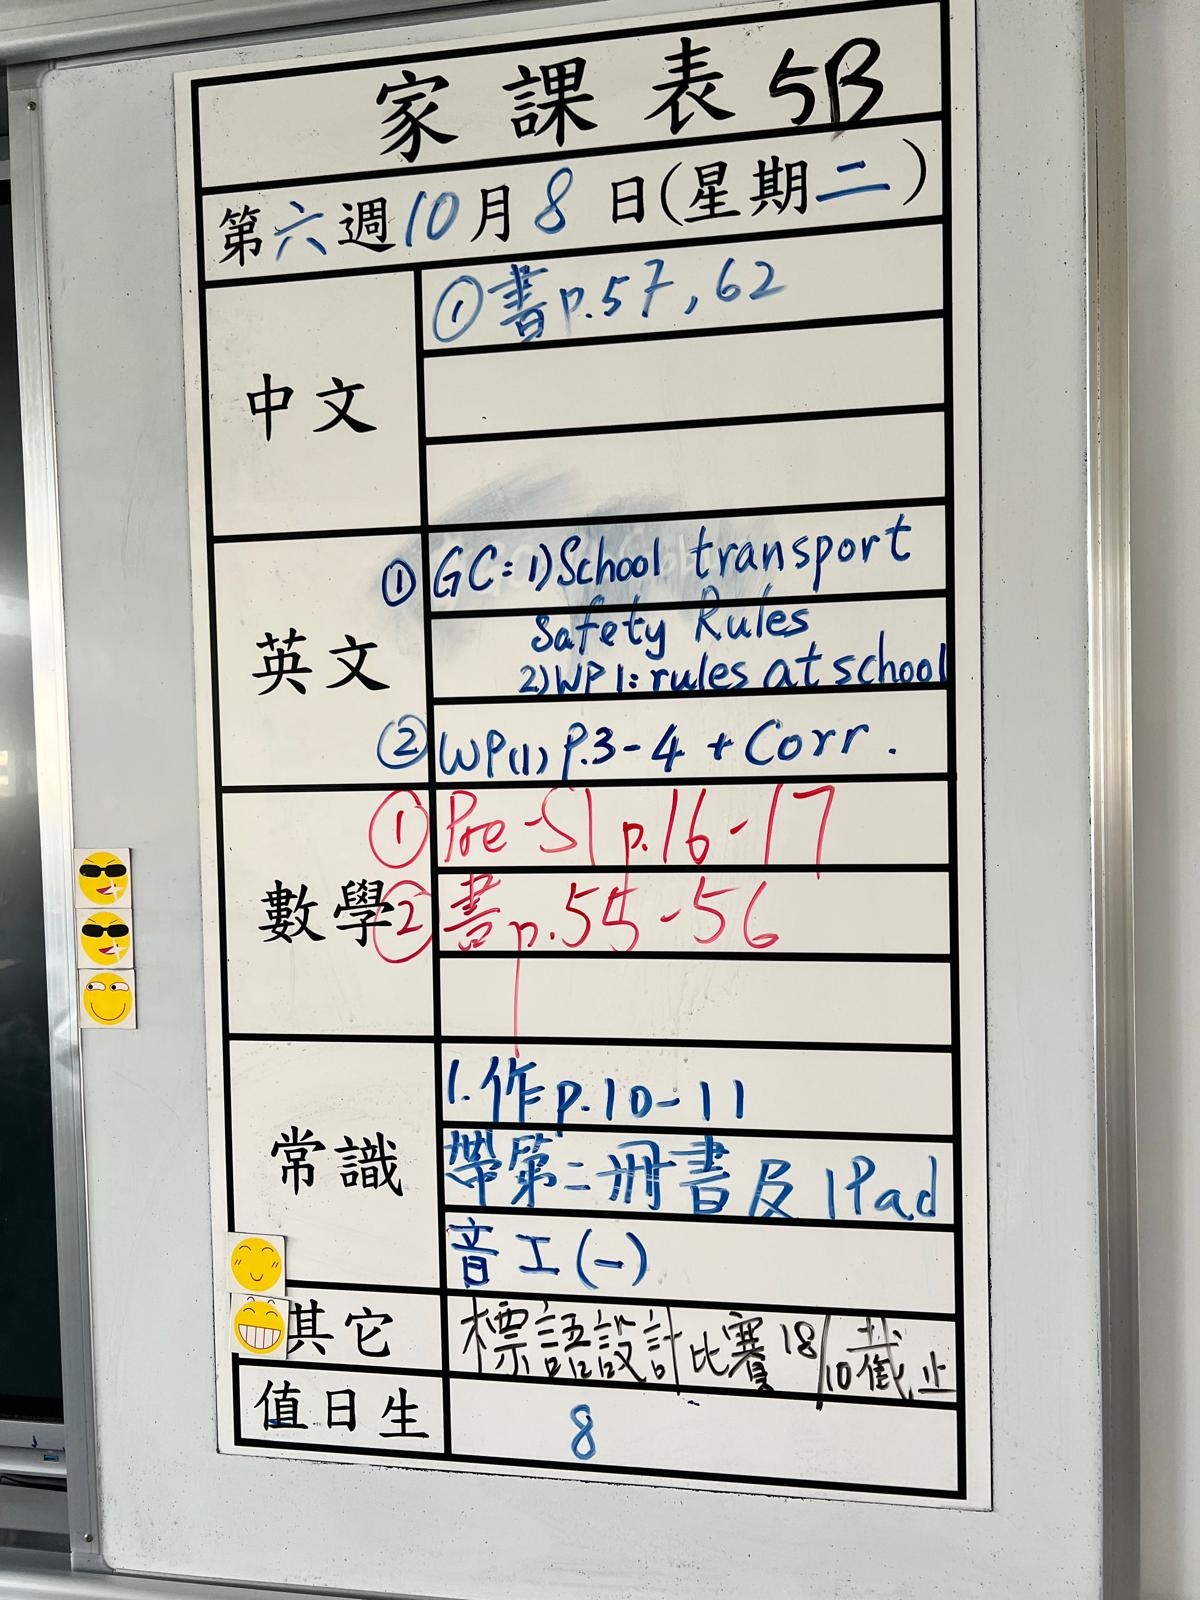 家課表 5B
第六週10月8日(星期二)
中文
①書p.57,62
英文
① GC: 1)School transport
Safety Rules
2)WP1: rules at school
② WP(1) P.3-4 + Corr.
數學
① Pre-S1 p.16-17
② 書p.55-56
常識
1.作p.10-11
帶第二冊書及IPad
音工(一)
其它
標語設計比賽18/10截止
值日生
8